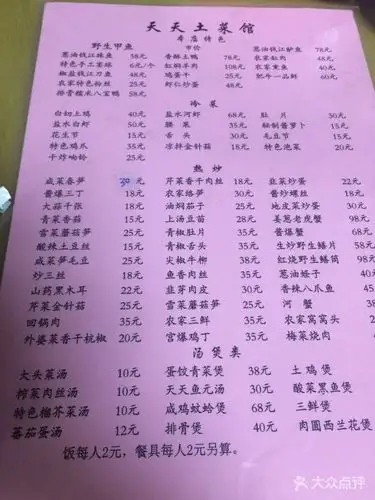 天天土菜馆
本店特色
野生甲鱼 市价 葱油钱江鲈鱼 78元
葱油钱江珠鱼 58元 香酥土鸭 78元 农家肚肉 48元
特色手工寨球 6元/个 红焖羊肉 108元 农家熏鱼 40元
椒盐钱江刀鱼 48元 鸡蛋干 25元 肥牛一品鲜 60元
农家特色粉丝 25元 虾仁炒蛋 48元
排骨糯米八宝鸭 58元
冷菜
白切土鸡 40元 盐水河虾 68元 肚片 30元
盐水白虾 50元 腰果 35元 秘制酱萝卜 15元
花生节 15元 舌头 30元 毛豆节 15元
特色鸡爪 35元 凉拌金针菇 15元 特色泡菜 20元
干炸响铃 25元
热炒
咸菜春笋 30元 芹菜香干肉丝 18元 韭菜炒蛋 22元
酱爆三丁 18元 农家络笋 30元 酱炒螺丝 18元
大蒜千张 18元 油焖茄子 25元 地皮菜炒蛋 30元
青菜香菇 15元 上汤豆苗 28元 姜葱老虎蟹 98元
雪菜蘑菇 25元 青椒肚片 35元 酱爆蟹 68元
酸辣土豆丝 15元 青椒舌头 35元 生炒野生鳝片 58元
咸菜笋毛豆 25元 尖椒牛柳 38元 红烧野生鳝筒 98元
炒三丝 18元 鱼香肉丝 35元 葱油蛏子 40元
山药黑木耳 22元 韭芽肉皮 30元 香辣八爪鱼 45元
芹菜金针菇 25元 雪菜蘑菇笋 25元 河蟹 38元
回锅肉 35元 农家三鲜 35元 农家窝窝头
外婆菜香干杭椒 20元 宫爆鸡丁 35元 梅菜烧肉
汤煲类
大头菜汤 10元 蛋饺青菜煲 38元 土鸡煲
榨菜肉丝汤 10元 天天鱼元汤 30元 酸菜黑鱼煲
特色榴芥菜汤 10元 咸鸡蚊蛤煲 68元 三鲜煲
蕃茄蛋汤 12元 排骨煲 40元 肉圆西兰花煲
饭每人2元，餐具每人2元另算。
大众点评